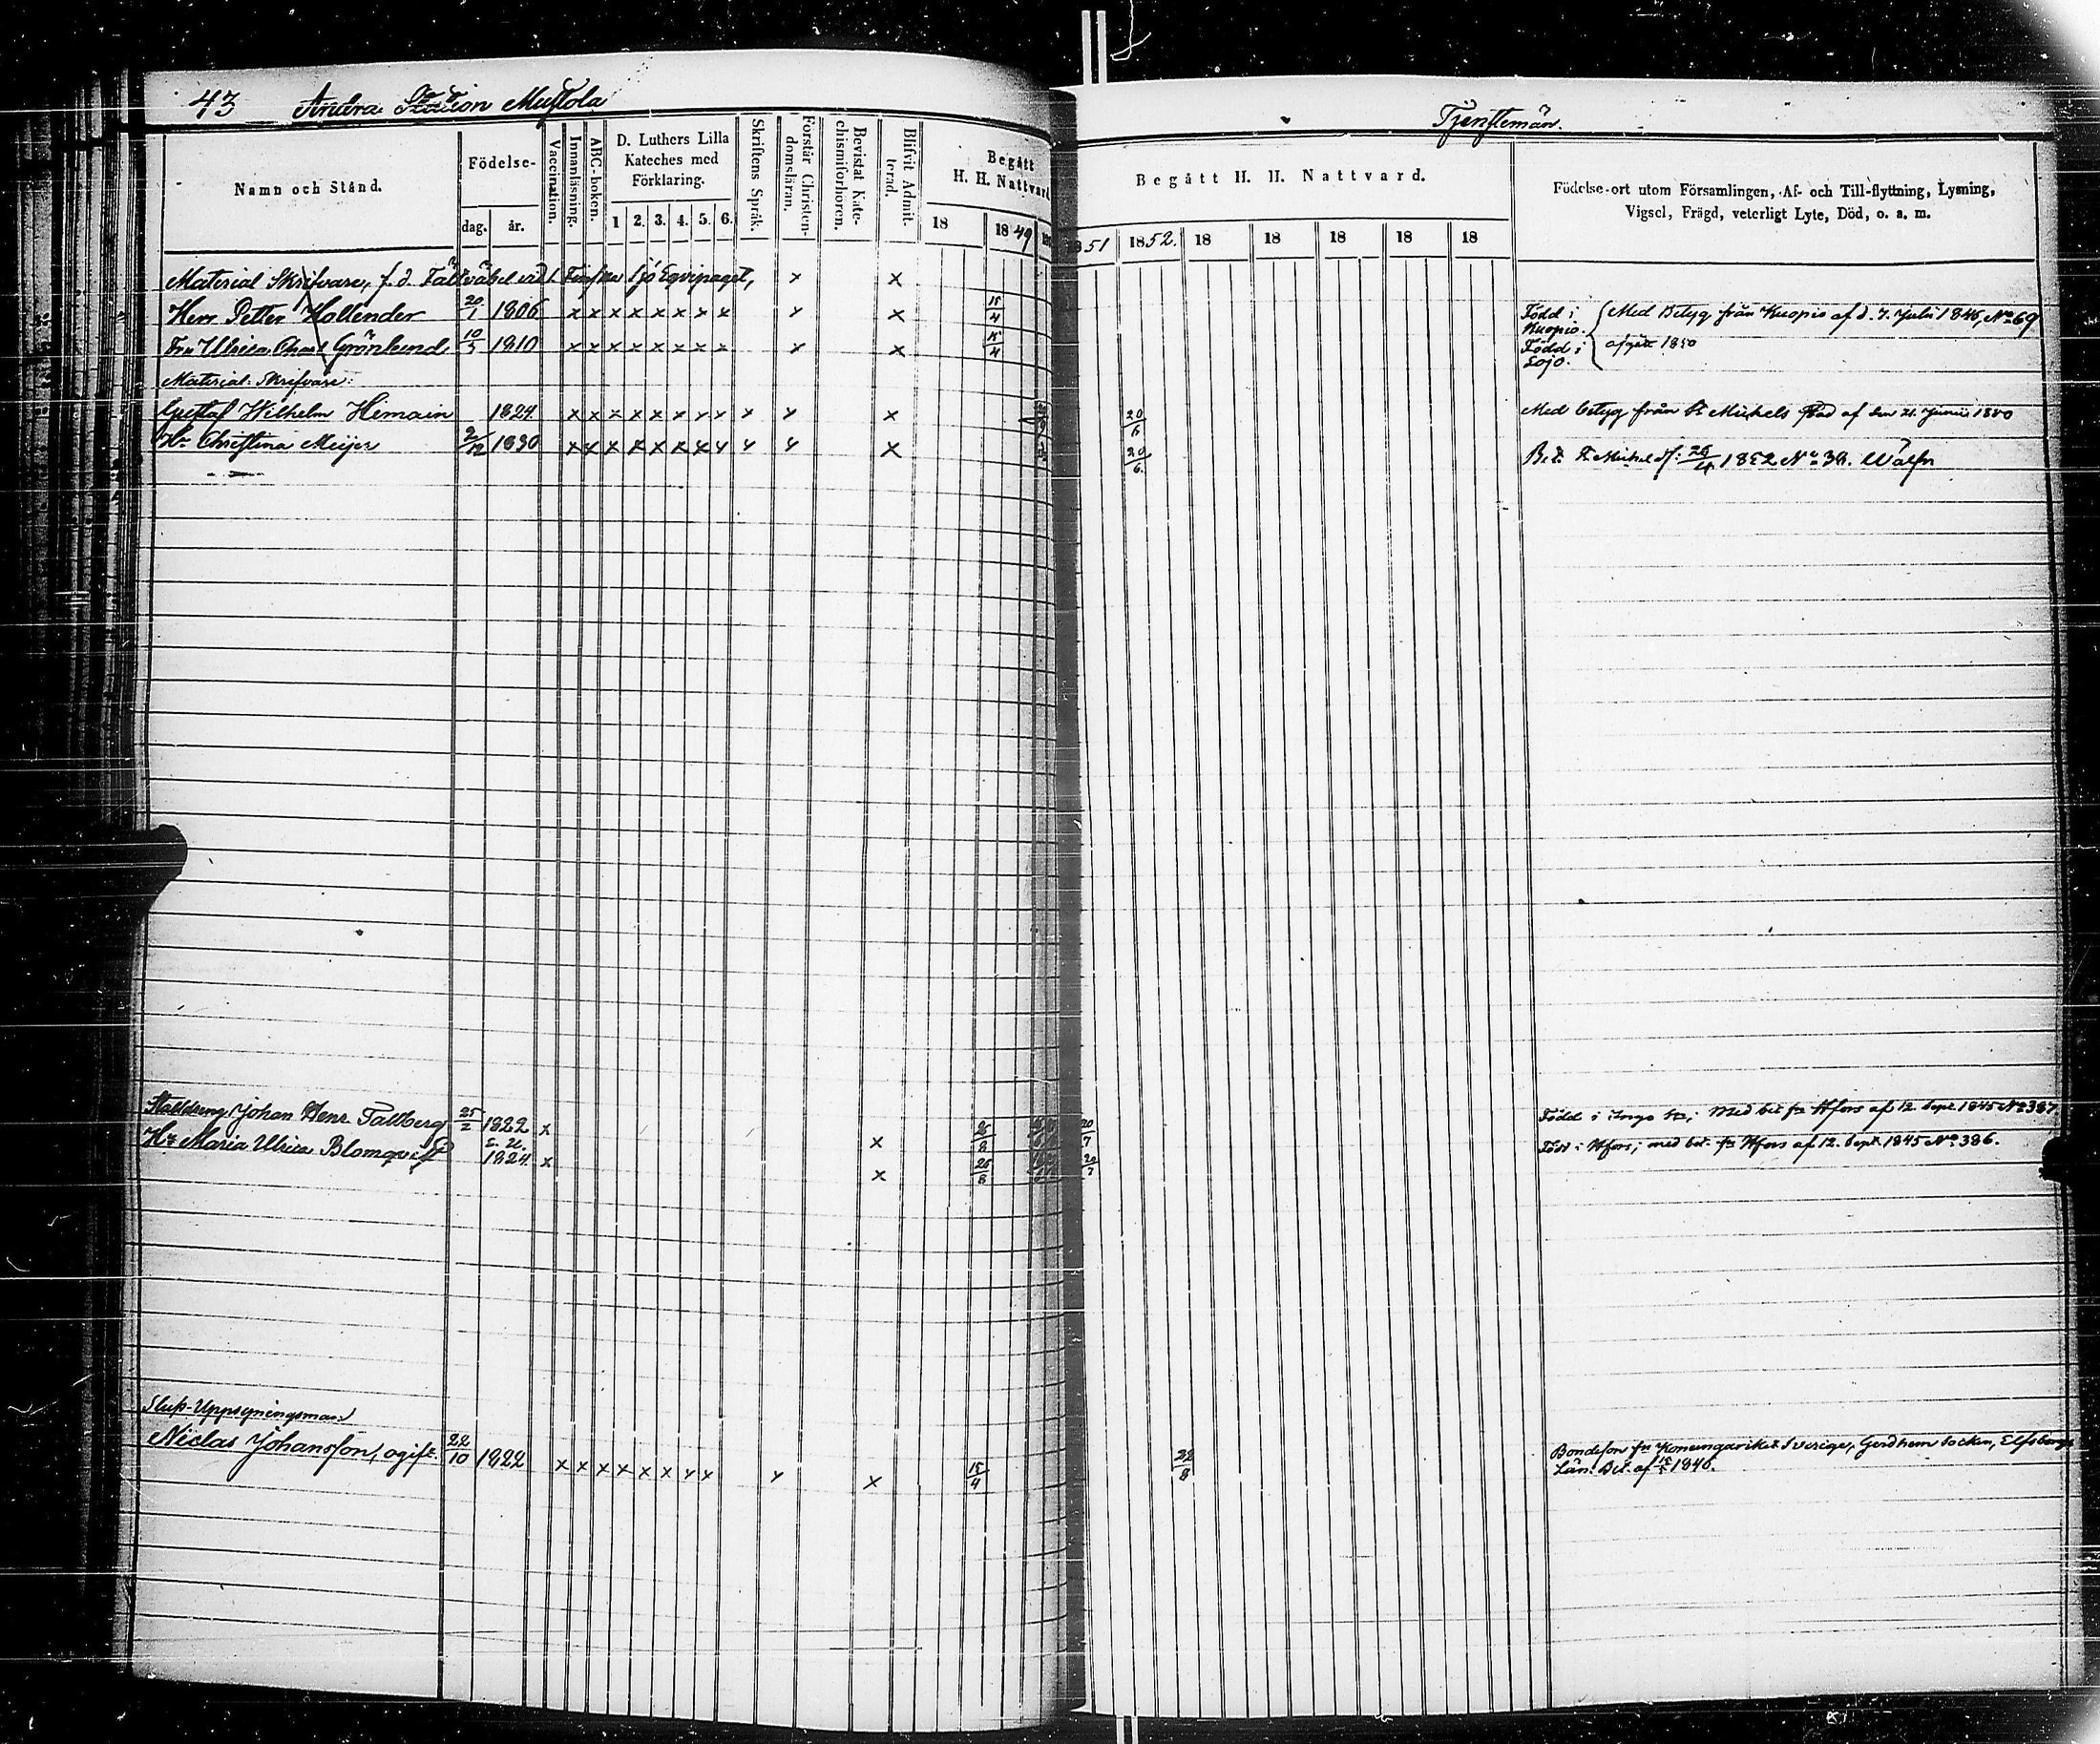 43 Andra Station Mustola
Tjenstemän.
Namn och Stånd.
Födelse-
dag. år.
Vaccination.
Innanläsning.
ABC-boken.
D. Luthers Lilla
Kateches med
Förklaring.
1 2. 3. 4. 5. 6.
Skriftens Språk.
Förstår Christen-
domsläran.
Bevistat Kate-
chismiförhören.
Blifvit Admit-
terad.
Begått
H. H. Nattvard
18 1849
Begått H. H. Nattvard.
1851 1852. 18 18 18 18 18
Födelse-ort utom Församlingen, Af- och Till-flyttning, Lysning,
Vigsel, Frägd, veterligt Lyte, Död, o. a. m.
Material Skrifvare, f. d. Fältväbel vid 1. Finska Sjö Eqvipaget, x x
Herr Petter Hollender 20/1 1806 x x x x x x x x x x 15/4 Född i Kuopio. Med Betyg från Kuopio af d. 7. Julii 1846, No 69
Fru Ulrica Grönlund 10/3 1810 x x x x x x x x x x 15/4 Född i Lojo. afgått 1850
Material: Skrifvare:
Gustaf Wilhelm Himain 1824 x x x x x x x x x x x 20/6 Med betyg från St Michels Stad af den 21. Junii 1850
Hr Christina Meijer 2/12 1830 x x x x x x x x x x x 20/6 Bet. St Michel af: 26/4 1852 No 38.
Stalldreng Johan Henr Tallberg 25/2 1822 x x 26/8 20/7 Född i Ingo Sn; Med bet fr Hfors af 12 Sept 1845 No 387.
s. u.
Hr Maria Ulrica Blomqvist 1824 x x 26/8 20/7 Född i Hfors; med bet. fr Hfors af 12. Sept 1845 No 386.
Sluss-Uppsyningsman
Niclas Johansson, ogift. 22/10 1822 x x x x x x x x x x 15/4 22/8 Bondeson fr Konungariket Sverige, Gerdhem Socken, Elfsborgs
Län. Bet. af 1846.